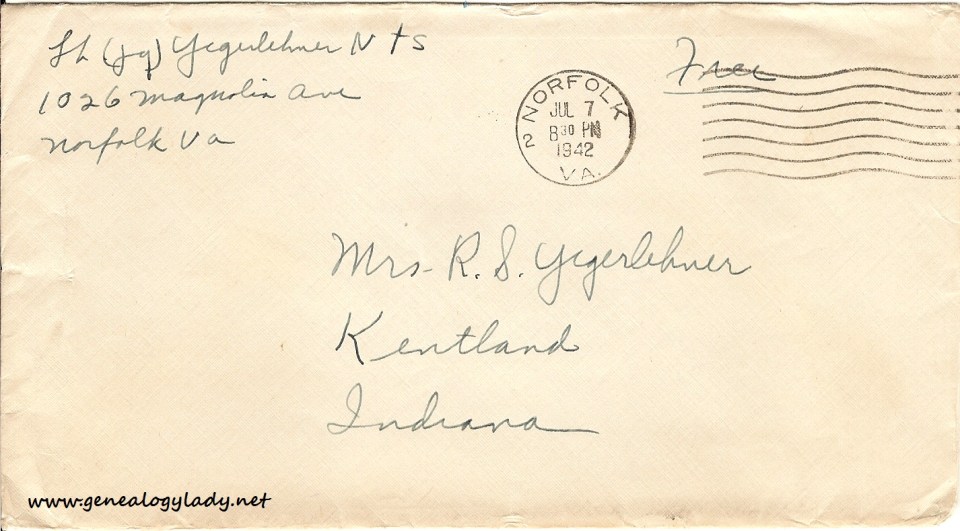 Lt (jg) Yegerlehner N t S
1026 Magnolia Ave
Norfolk Va
Free
2 NORFOLK VA.
JUL 7
8 30 PM
1942
Mrs. R. S. Yegerlehner
Kentland
Indiana
www.genealogylady.net